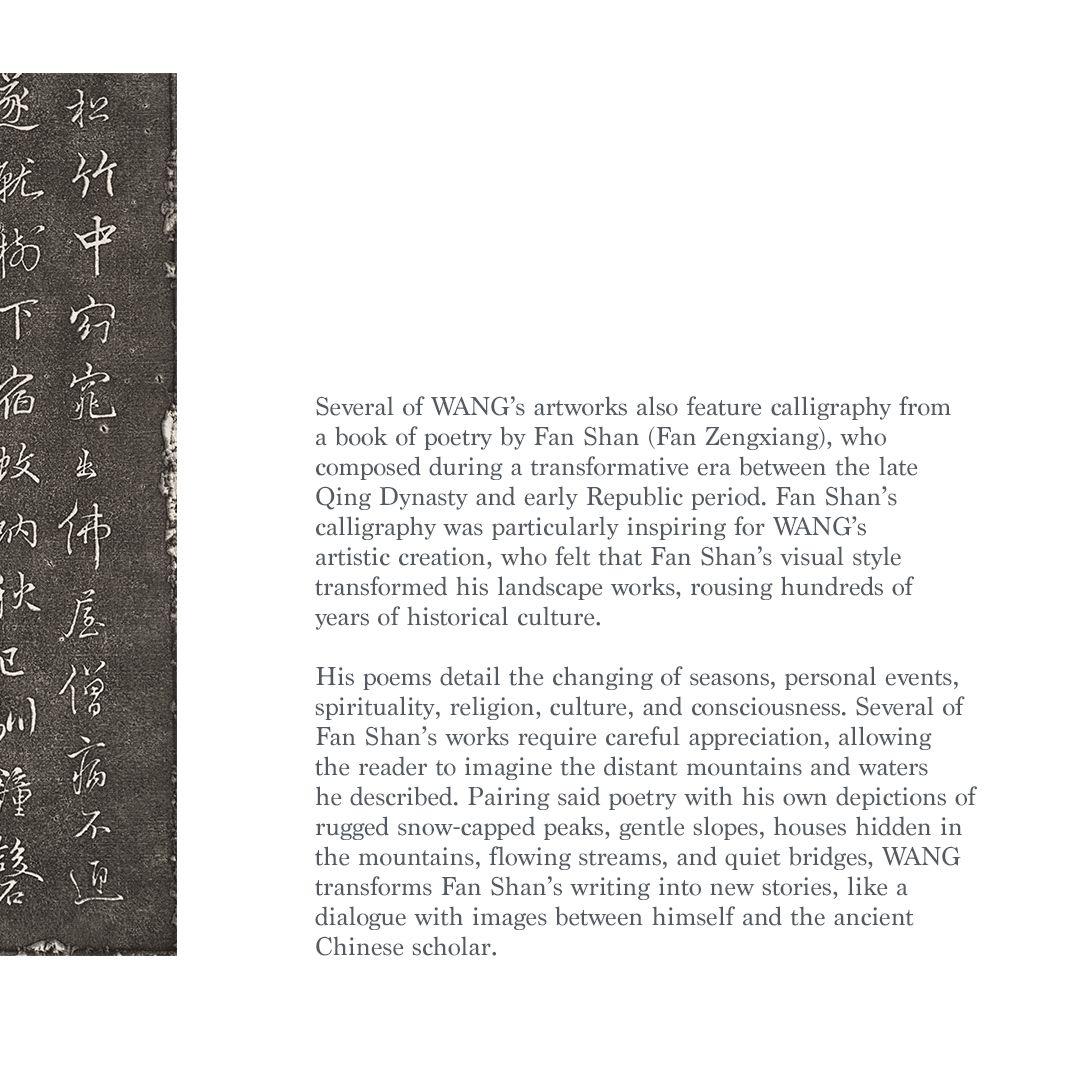 松竹中窈窕出佛屋僧病不迎
遂就樹下宿蚊蚋秋已馴鐘磬
Several of WANG's artworks also feature calligraphy from
a book of poetry by Fan Shan (Fan Zengxiang), who
composed during a transformative era between the late
Qing Dynasty and early Republic period. Fan Shan's
calligraphy was particularly inspiring for WANG's
artistic creation, who felt that Fan Shan's visual style
transformed his landscape works, rousing hundreds of
years of historical culture.
His poems detail the changing of seasons, personal events,
spirituality, religion, culture, and consciousness. Several of
Fan Shan's works require careful appreciation, allowing
the reader to imagine the distant mountains and waters
he described. Pairing said poetry with his own depictions of
rugged snow-capped peaks, gentle slopes, houses hidden in
the mountains, flowing streams, and quiet bridges, WANG
transforms Fan Shan's writing into new stories, like a
dialogue with images between himself and the ancient
Chinese scholar.